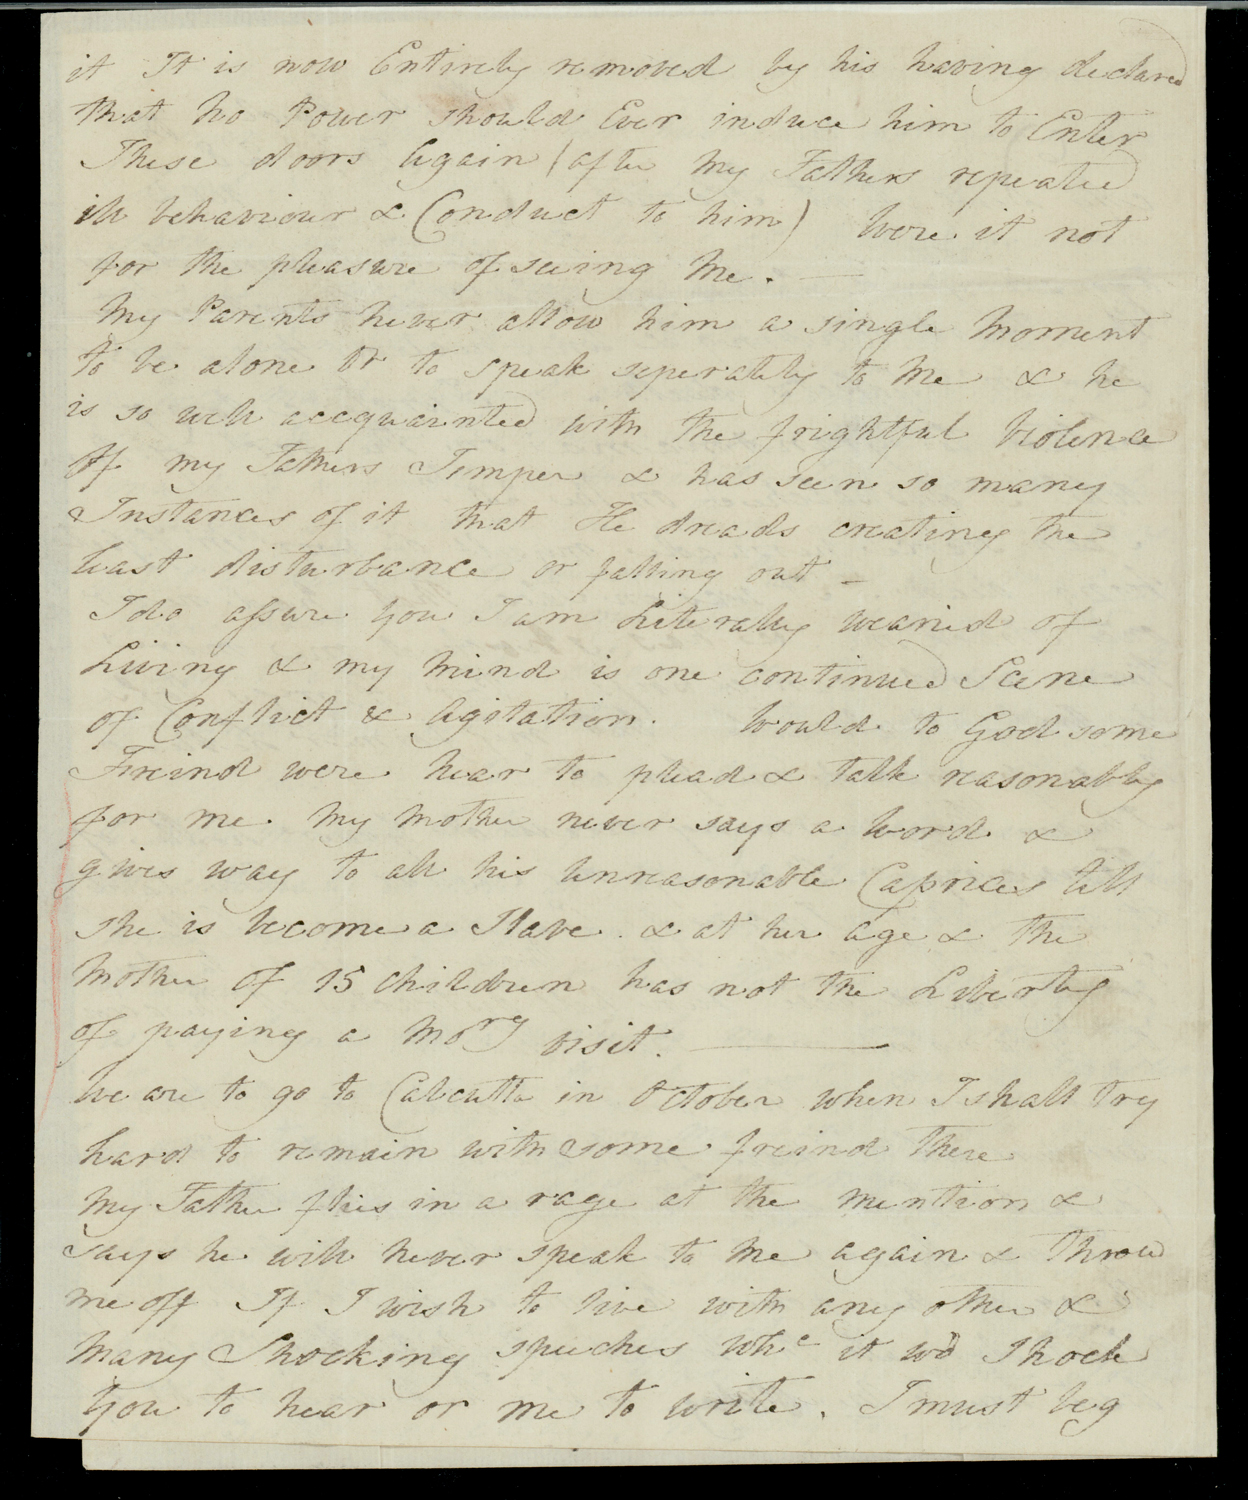 it It is now Entirely removed by his having declared
that no Power should Ever induce him to Enter
These doors Again (after my Fathers repeated
ill behaviour & Conduct to him) Were it not
for the pleasure of seeing Me. —
My Parents never allow him a single Moment
to be alone Or to speak seperately to Me & he
is so well accquainted with the frightful Violence
Of my Fathers Temper & has seen so many
Instances of it that He dreads creating the
least disturbance or falling out –
I do assure you I am Literally wearied of
Living & my Mind is one continued Scene
of Conflict & Agitation. Would to God some
Freind were near to plead & talk reasonably
for me. My Mother never says a Word &
gives way to all his Unreasonable Caprices till
she is become a Slave. & at her age & the
Mother Of 15 Children has not the Liberty
of paying a Morg visit. —
We are to go to Calcutta in October when I shall try
hard to remain with some freind There
My Father flies in a rage at the mention &
says he will never speak to Me again & Throw
me off If I wish to live with any other &
Many Shocking speeches whc it wd Shock
You to hear or me to write. I must beg